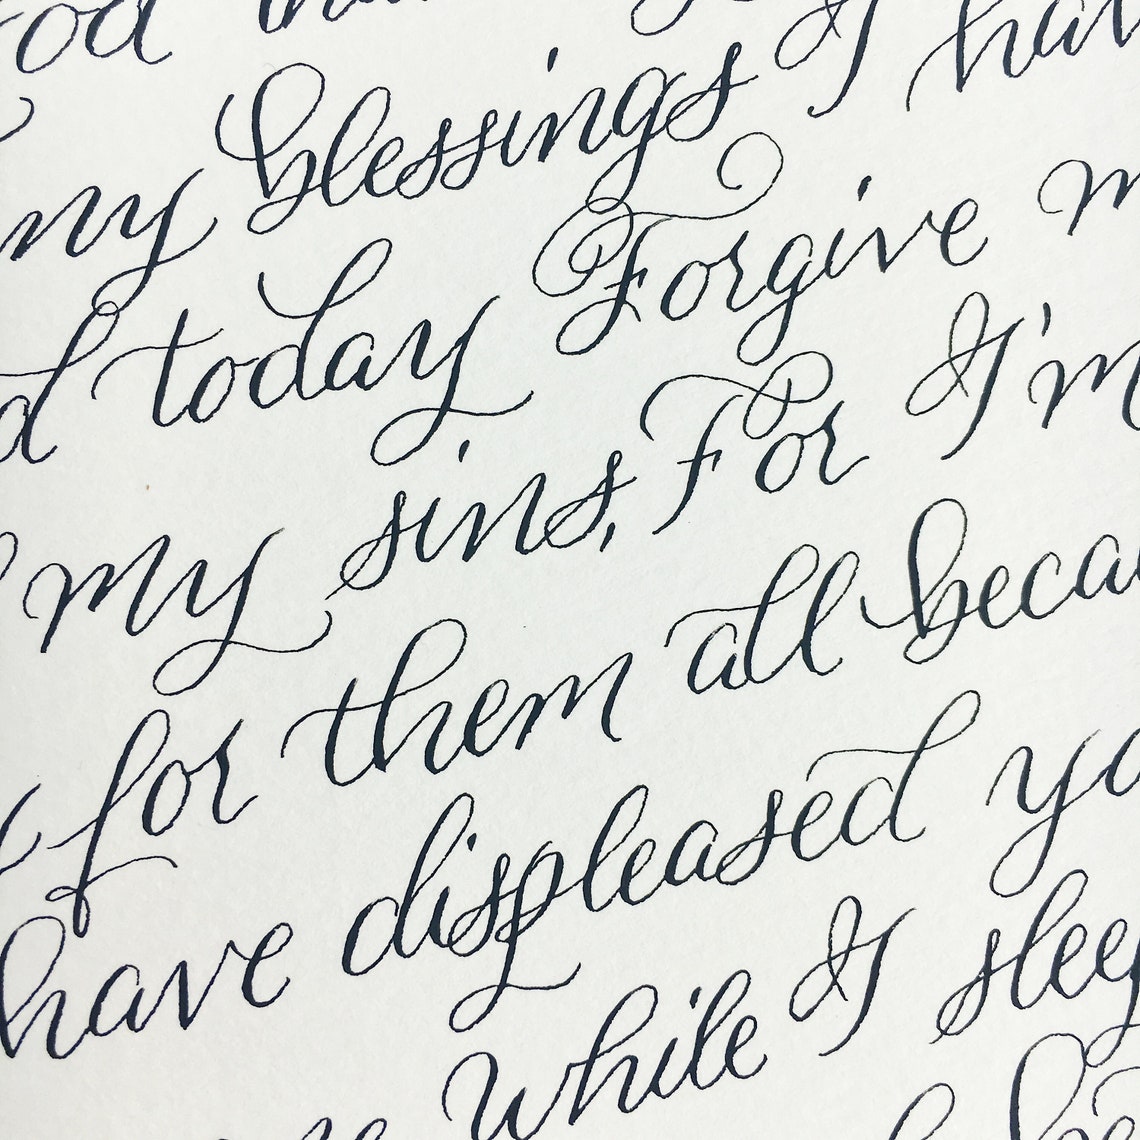 my blessings I have
today Forgive
my sins, For I'm
for them all becau
have displeased yo
while I sleep